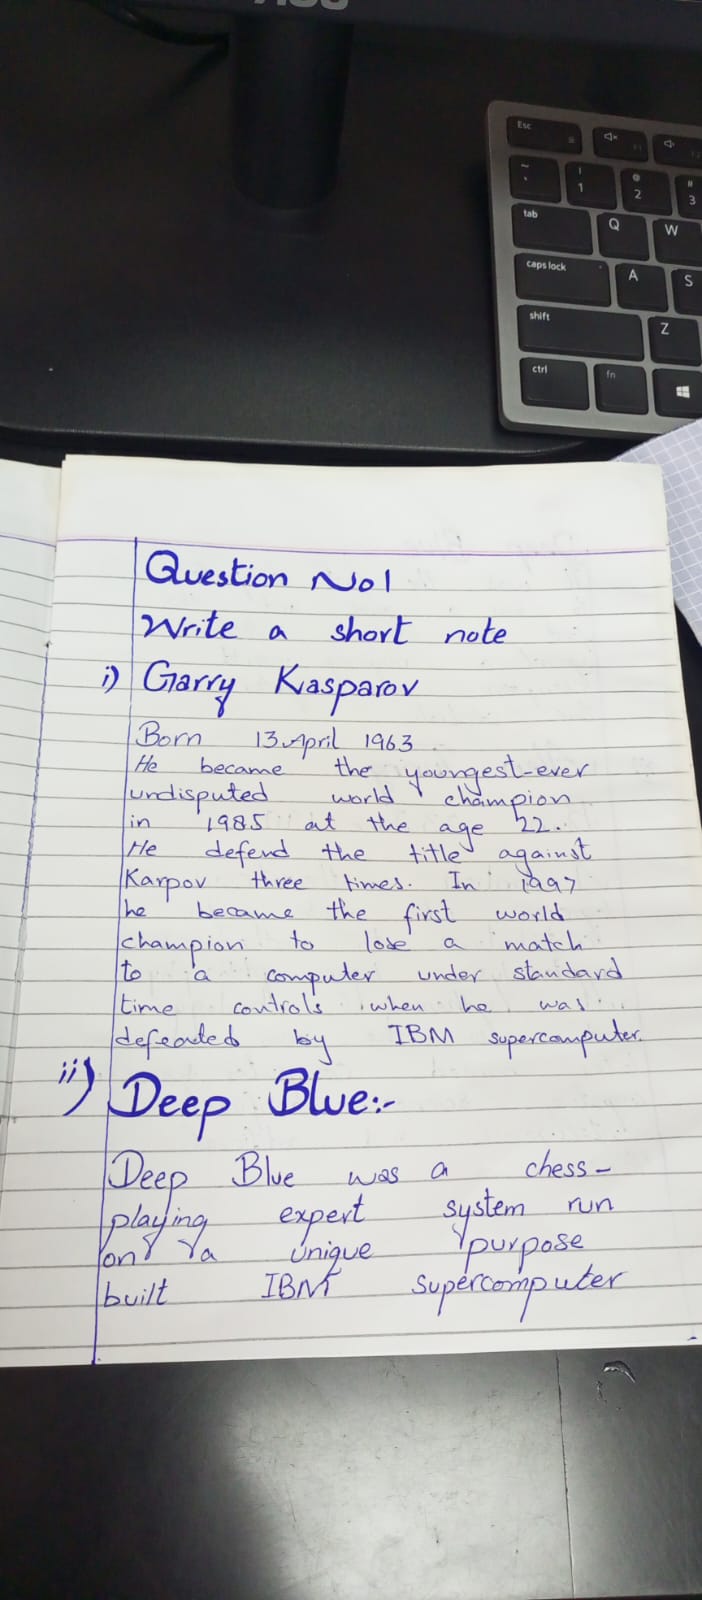 Esc
~
`
!
1
@
2
#
3
tab
Q
W
caps lock
A
S
shift
Z
ctrl
fn
Question No1
Write a short note
i) Garry Kasparov
Born 13 April 1963
He became the youngest-ever
undisputed world champion
in 1985 at the age 22.
He defend the title against
Karpov three times. In 1997
he became the first world
champion to lose a match
to a computer under standard
time controls when he was
defeated by IBM supercomputer.
ii) Deep Blue:-
Deep Blue was a chess-
playing expert system run
on a unique purpose
built IBM supercomputer